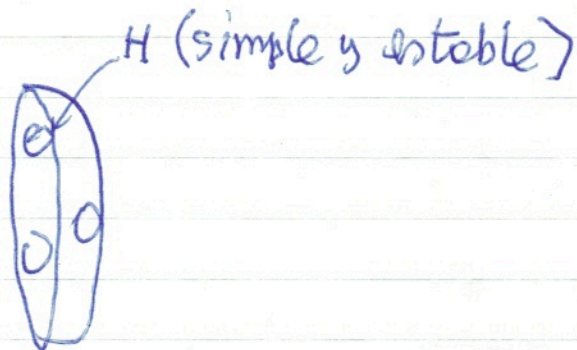 H (simple y estable)